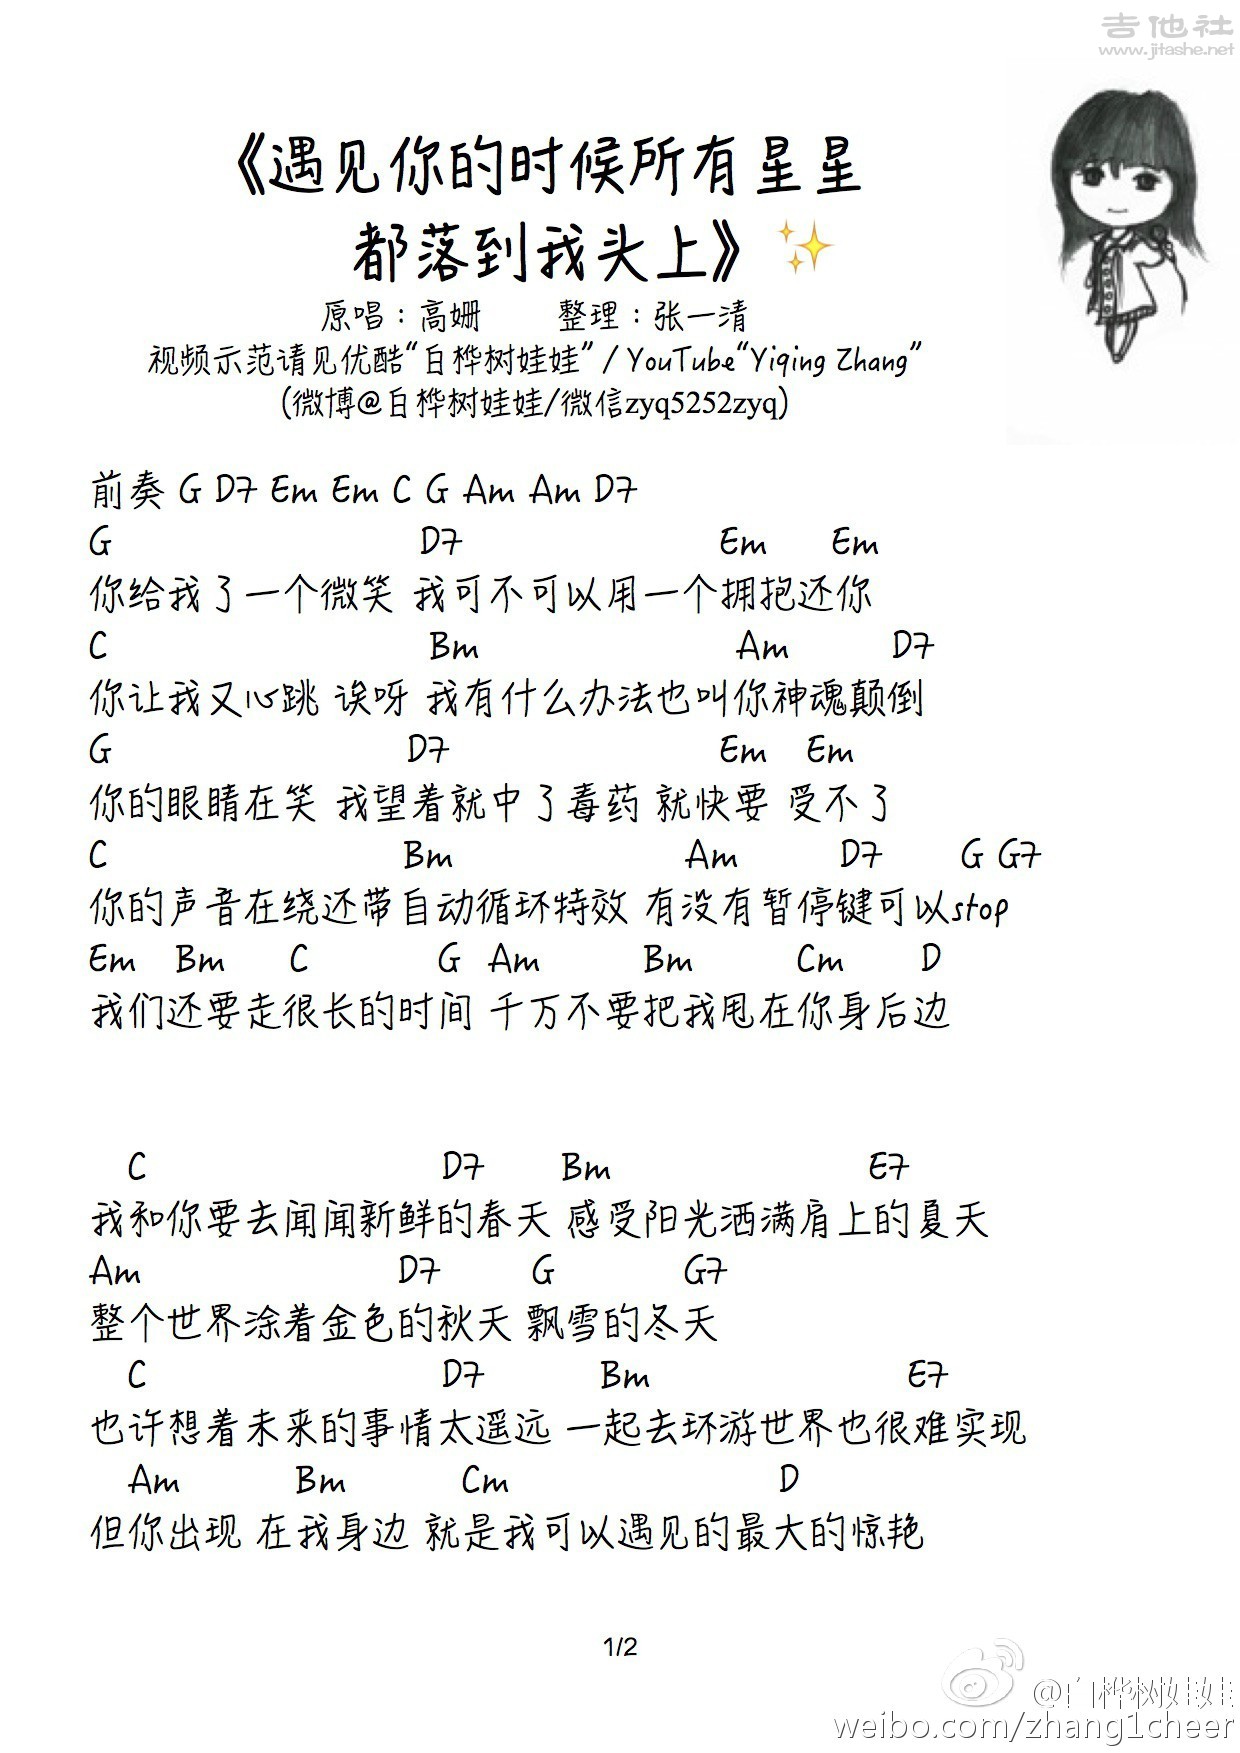 吉他社
www.jitashe.net
《遇见你的时候所有星星
都落到我头上》✨
原唱：高姗 整理：张一清
视频示范请见优酷“白桦树娃娃” / YouTube“Yiqing Zhang”
(微博@白桦树娃娃/微信zyq5252zyq)
前奏 G D7 Em Em C G Am Am D7
G D7 Em Em
你给我了一个微笑 我可不可以用一个拥抱还你
C Bm Am D7
你让我又心跳 诶呀 我有什么办法也叫你神魂颠倒
G D7 Em Em
你的眼睛在笑 我望着就中了毒药 就快要 受不了
C Bm Am D7 G G7
你的声音在绕还带自动循环特效 有没有暂停键可以stop
Em Bm C G Am Bm Cm D
我们还要走很长的时间 千万不要把我甩在你身后边
C D7 Bm E7
我和你要去闻闻新鲜的春天 感受阳光洒满肩上的夏天
Am D7 G G7
整个世界涂着金色的秋天 飘雪的冬天
C D7 Bm E7
也许想着未来的事情太遥远 一起去环游世界也很难实现
Am Bm Cm D
但你出现 在我身边 就是我可以遇见的最大的惊艳
1/2
@白桦树娃娃
weibo.com/zhang1cheer